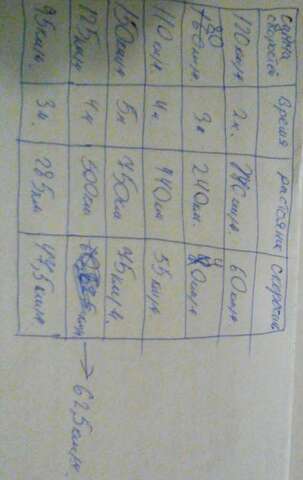 Сумма скоростей Время растояне скорость
120 км/ч 2ч. 240 км/ч 60 км/ч
80 км/ч 3ч 240 км. 40 км/ч
110 км/ч 4ч 440 км 55 км/ч
150 км/ч 5ч 750 км 75 км/ч.
125 км/ч 4ч 500 км → 62,5 км/ч.
95 км/ч. 3ч. 285 км 47,5 км/ч